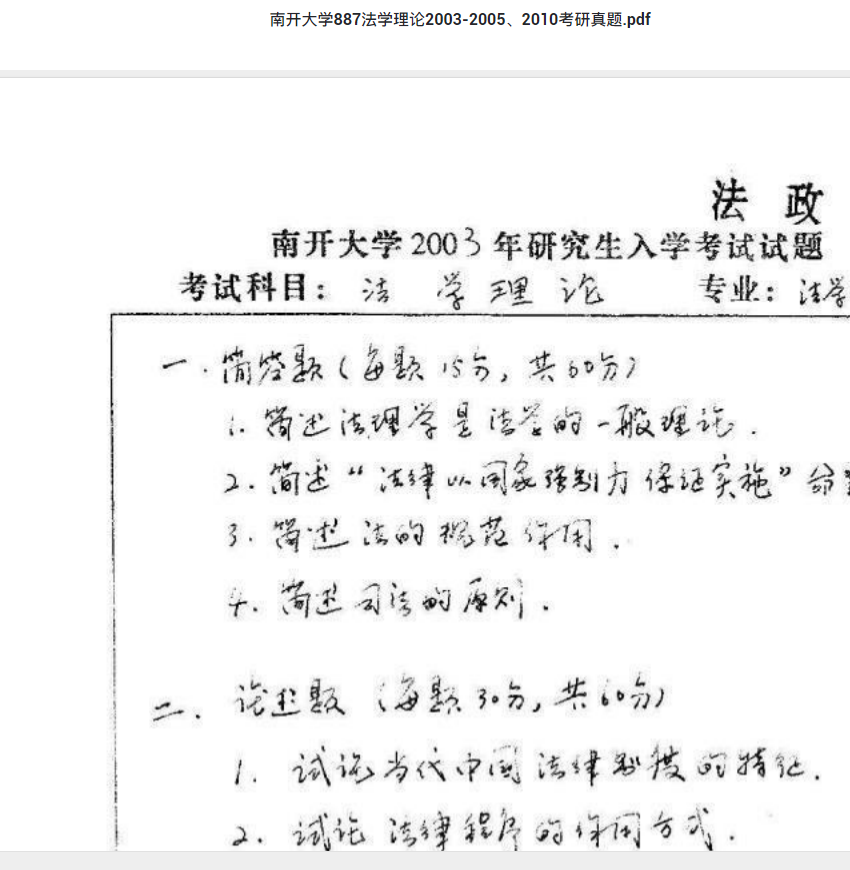 南开大学887法学理论2003-2005、2010考研真题.pdf
法 政
南开大学2003年研究生入学考试试题
考试科目: 法 学 理 论 专业: 法学
一.简答题(每题15分,共60分)
1.简述法理学是法学的一般理论.
2.简述“法律以国家强制力保证实施”命
3.简述法的规范作用.
4.简述司法的原则.
二.论述题(每题30分,共60分)
1.试论当代中国法律制度的特征.
2.试论法律程序的作用方式.